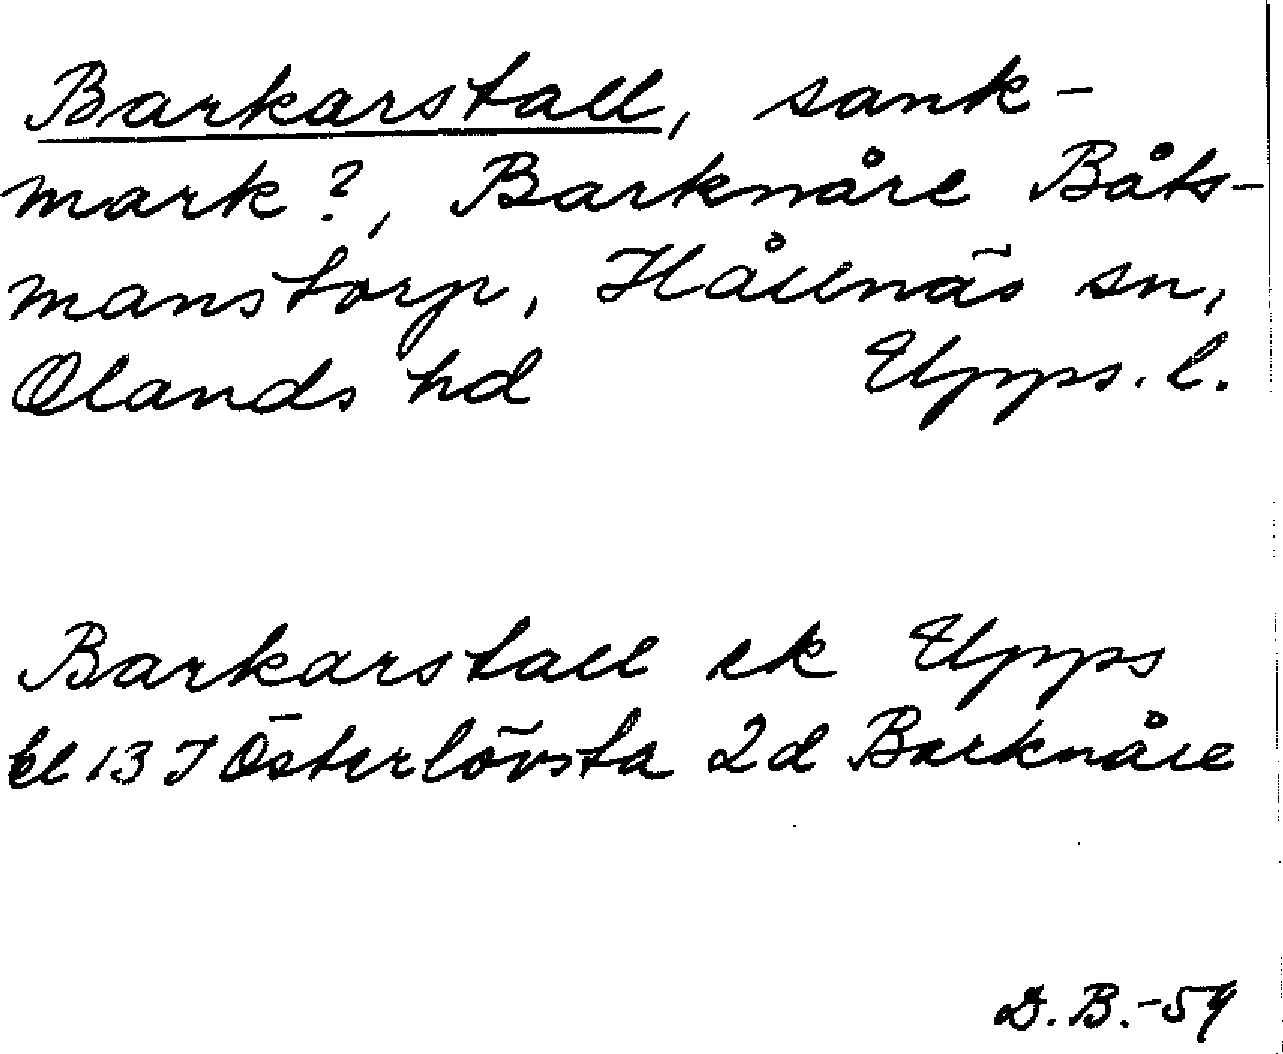 Barkarstall, sank-
mark?, Barknåre Båts-
manstorp, Hållnäs sn,
Olands hd Upps. l.
Barkarstall ek Upps
bl 13 I Österlövsta 2d Barknåre
D.B.-59